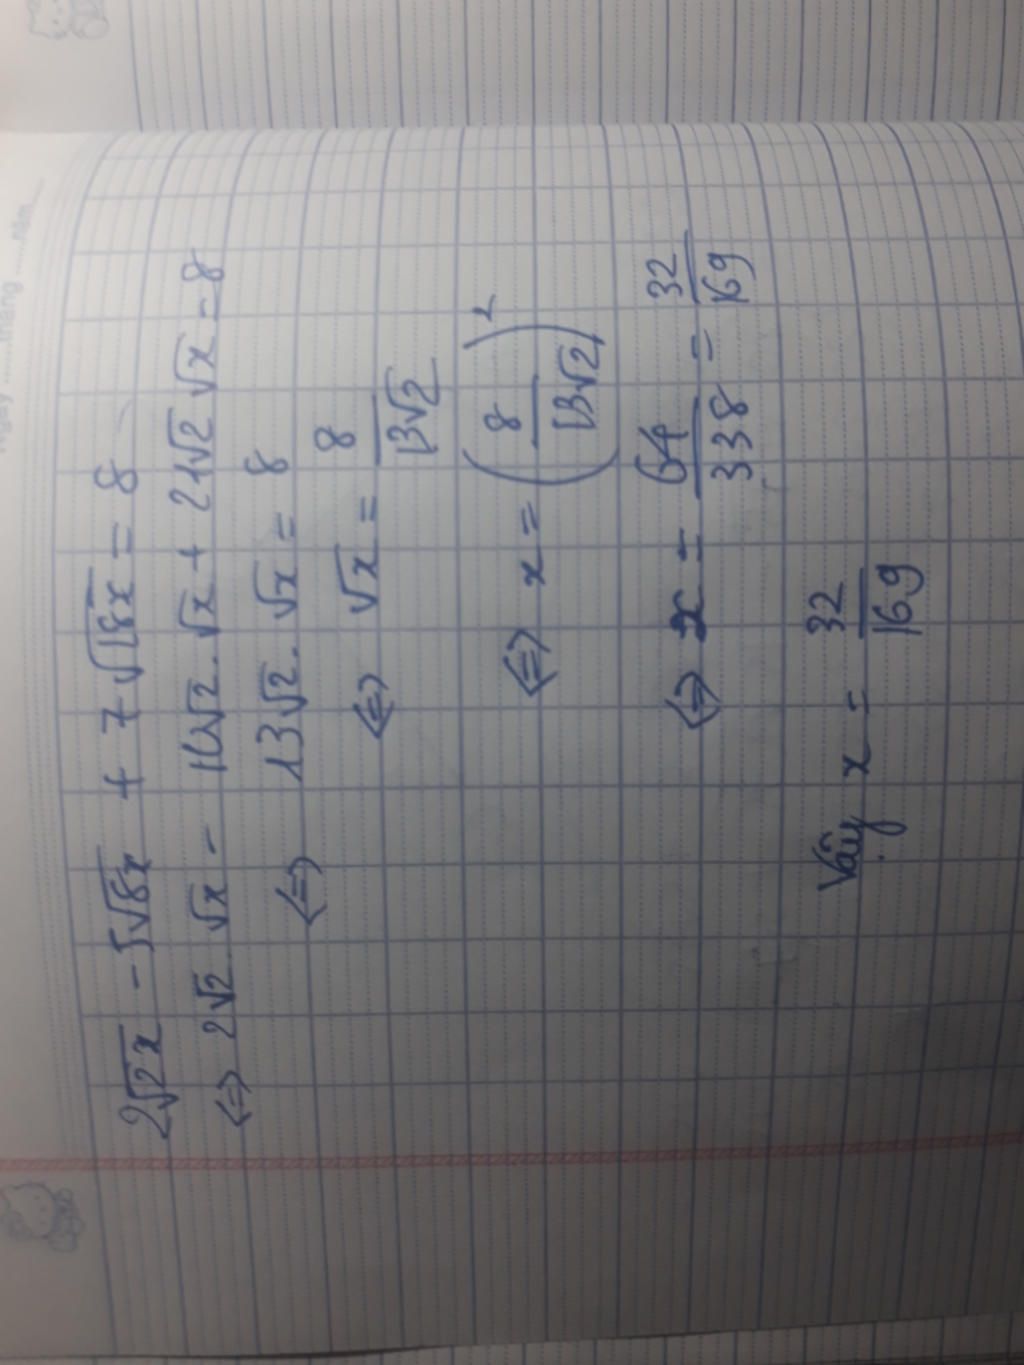 2√2x - 5√8x + 7√18x = 8
⇔ 2√2.√x - 10√2.√x + 21√2 √x = 8
⇔ 13√2.√x = 8
⇔ √x = 8/13√2
⇔ x = (8/13√2)²
⇔ x = 64/338 = 32/169
Vậy x = 32/169